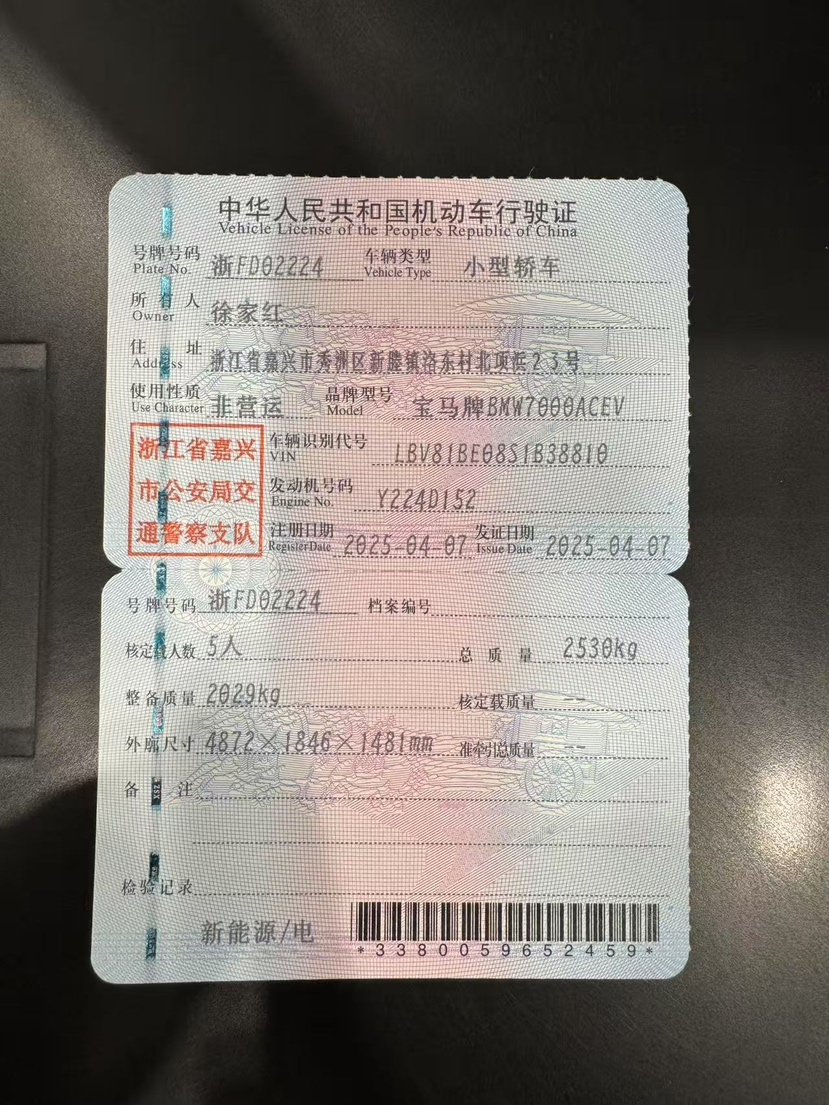 中华人民共和国机动车行驶证
Vehicle License of the People's Republic of China
号牌号码 Plate No. 浙FD02224 车辆类型 Vehicle Type 小型轿车
所有人 Owner 徐家红
住址 Address 浙江省嘉兴市秀洲区新塍镇洛东村北项浜23号
使用性质 Use Character 非营运 品牌型号 Model 宝马牌BMW7000ACEV
浙江省嘉兴
市公安局交
通警察支队
车辆识别代号 VIN LBV81BE08S1B38810
发动机号码 Engine No. Y224D152
注册日期 Register Date 2025-04-07 发证日期 Issue Date 2025-04-07
号牌号码 浙FD02224 档案编号
核定载人数 5人 总质量 2530kg
整备质量 2029kg 核定载质量 --
外廓尺寸 4872×1846×1481mm 准牵引总质量 --
备注
检验记录
新能源/电
*3380059652459*